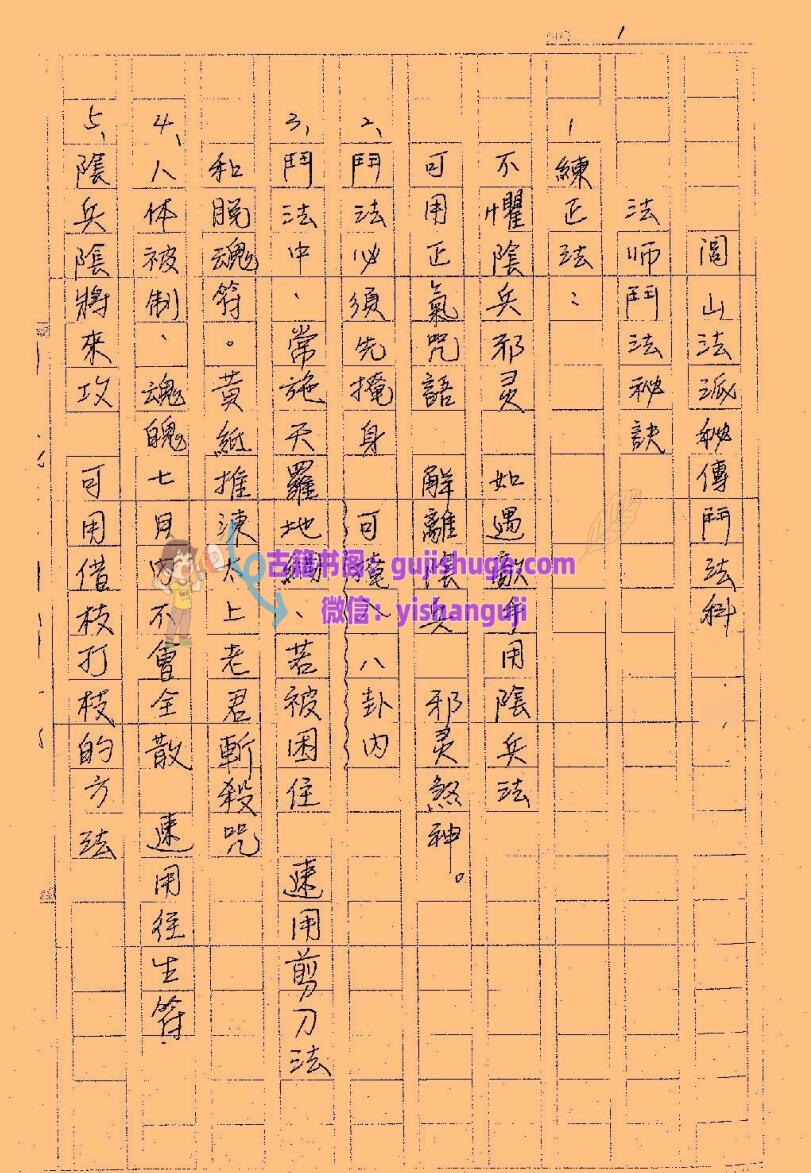 1
閭山法派秘傳鬥法科
法师鬥法秘訣
1練正法：
不懼陰兵邪灵 如遇敵手用陰兵法
可用正氣咒語 解離陰兵 邪灵煞神。
2、鬥法必須先掩身 可掩入八卦内
3、鬥法中、常施天羅地網、若被困住 速用剪刀法
和脱魂符。黄紙推涷太上老君斬殺咒
4、人体被制、魂魄七日内不會全散 速用往生符
5、陰兵陰將來攻 可用借枝打枝的方法
古籍书阁：gujishuge.com
微信：yishanguji